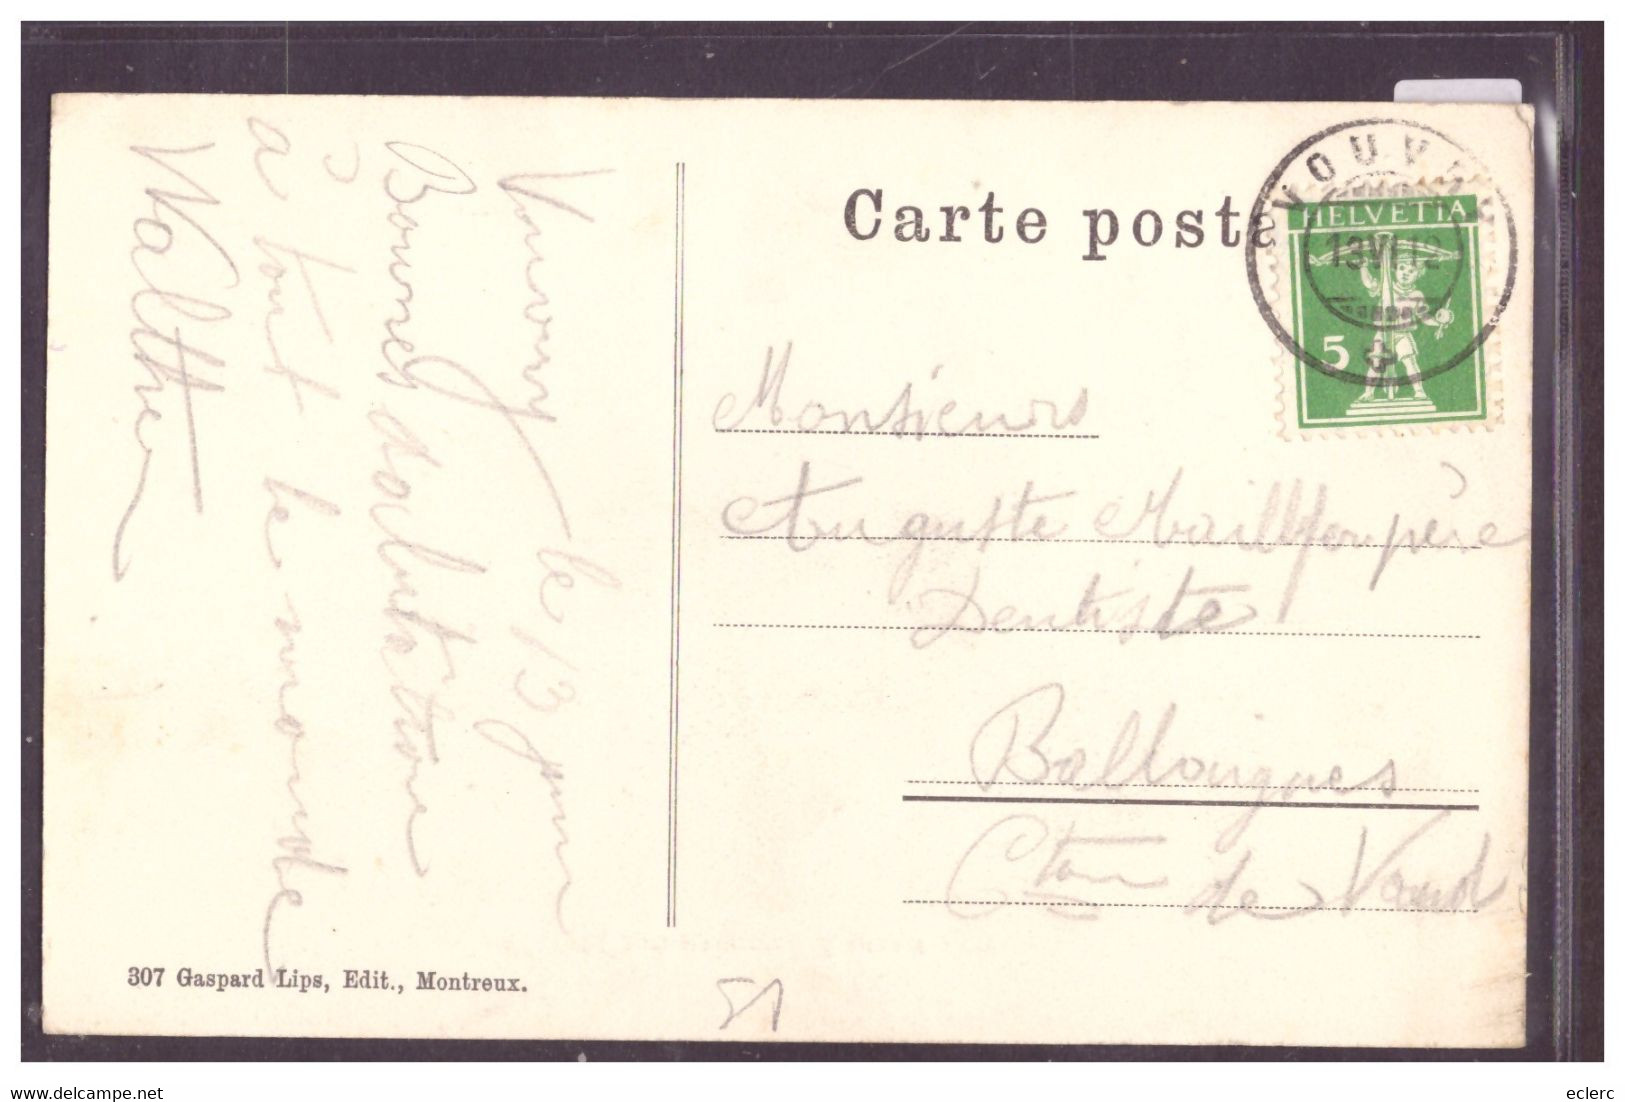 Carte posta
VOUVRY
HELVETIA
13 VI 12
5
Vouvry le 13 juin
Bonnes salutations
à tout le monde
Walther
Monsieurs
Auguste Maillfoupère
Dentiste
Ballaigues
Cton de Vaud
307 Gaspard Lips, Edit., Montreux.
51
www.delcampe.net
eclerc